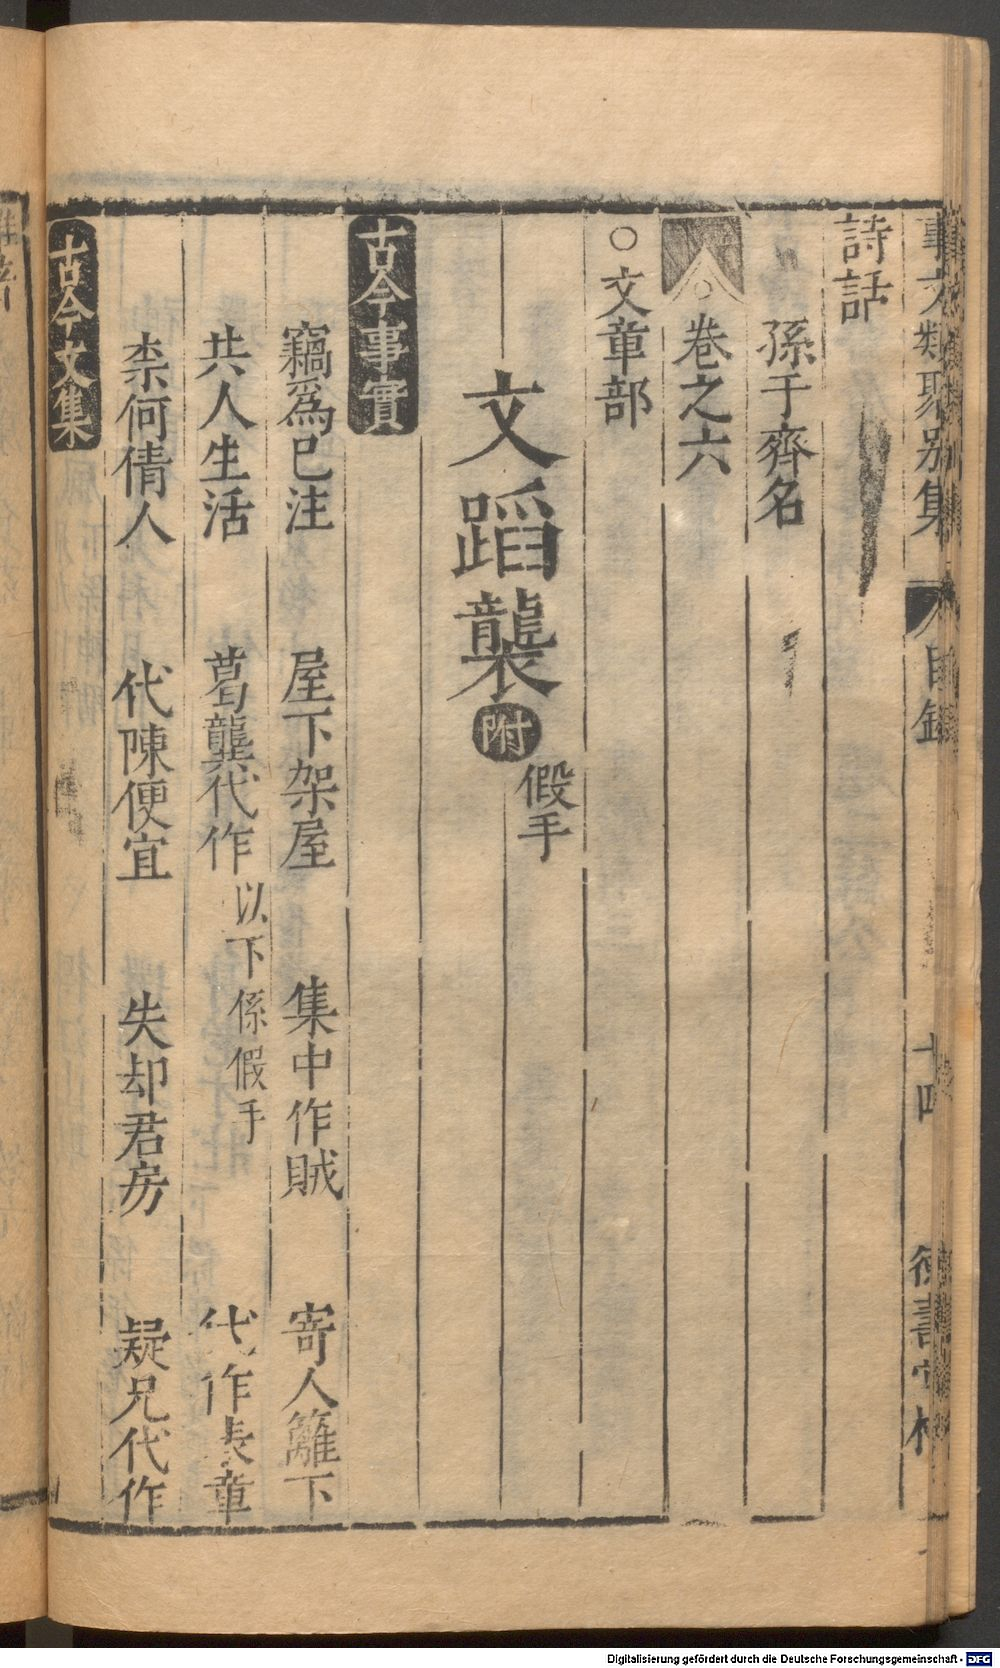 事文類聚别集 目錄 十四
詩話
孫于齊名
卷之六
○文章部
文蹈襲 附 假手
古今事實
竊爲已注 屋下架屋 集中作賊 寄人籬下
共人生活 葛龔代作 以下係假手 代作表章
柰何倩人 代陳便宜 失却君房 疑兄代作
古今文集
Digitalisierung gefördert durch die Deutsche Forschungsgemeinschaft - DFG